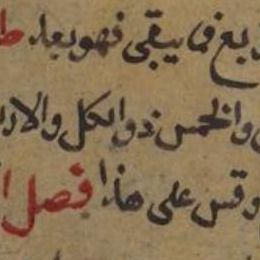 ربع فما يبقى فهو بعد
والخمس ذو الكل والار
وقس على هذا فصل